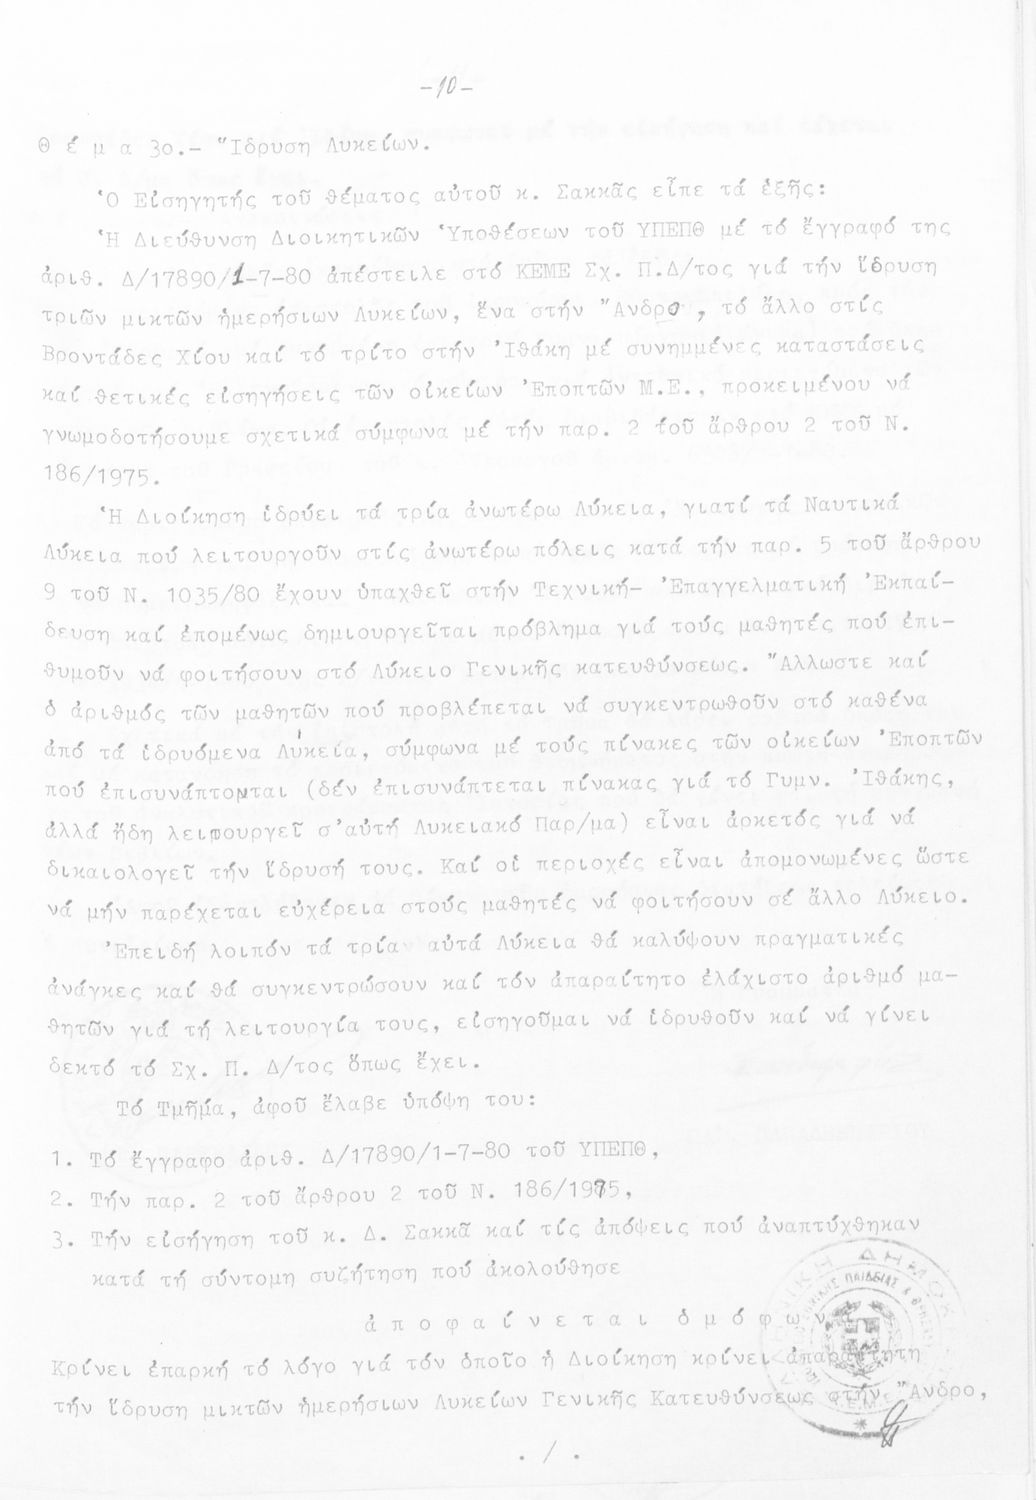 -10-
Θ έ μ α 3ο.- Ἵδρυση Λυκείων.
Ὁ Εἰσηγητής τοῦ θέματος αὐτοῦ κ. Σακκᾶς εἶπε τά ἑξῆς:
Ἡ Διεύθυνση Διοικητικῶν Ὑποθέσεων τοῦ ΥΠΕΠΘ μέ τό ἔγγραφό της
ἀριθ. Δ/17890/1-7-80 ἀπέστειλε στό ΚΕΜΕ Σχ. Π.Δ/τος γιά τήν ἵδρυση
τριῶν μικτῶν ἡμερήσιων Λυκείων, ἕνα στήν Ἄνδρο, τό ἄλλο στίς
Βροντάδες Χίου καί τό τρίτο στήν Ἰθάκη μέ συνημμένες καταστάσεις
καί θετικές εἰσηγήσεις τῶν οἰκείων Ἐποπτῶν Μ.Ε., προκειμένου νά
γνωμοδοτήσουμε σχετικά σύμφωνα μέ τήν παρ. 2 τοῦ ἄρθρου 2 τοῦ Ν.
186/1975.
Ἡ Διοίκηση ἱδρύει τά τρία ἀνωτέρω Λύκεια, γιατί τά Ναυτικά
Λύκεια πού λειτουργοῦν στίς ἀνωτέρω πόλεις κατά τήν παρ. 5 τοῦ ἄρθρου
9 τοῦ Ν. 1035/80 ἔχουν ὑπαχθεῖ στήν Τεχνική- Ἐπαγγελματική Ἐκπαί-
δευση καί ἑπομένως δημιουργεῖται πρόβλημα γιά τούς μαθητές πού ἐπι-
θυμοῦν νά φοιτήσουν στό Λύκειο Γενικῆς κατευθύνσεως. Ἄλλωστε καί
ὁ ἀριθμός τῶν μαθητῶν πού προβλέπεται νά συγκεντρωθοῦν στό καθένα
ἀπό τά ἱδρυόμενα Λύκεία, σύμφωνα μέ τούς πίνακες τῶν οἰκείων Ἐποπτῶν
πού ἐπισυνάπτονται (δέν ἐπισυνάπτεται πίνακας γιά τό Γυμν. Ἰθάκης,
ἀλλά ἤδη λειτουργεῖ σ'αὐτή Λυκειακό Παρ/μα) εἶναι ἀρκετός γιά νά
δικαιολογεῖ τήν ἵδρυσή τους. Καί οἱ περιοχές εἶναι ἀπομονωμένες ὥστε
νά μήν παρέχεται εὐχέρεια στούς μαθητές νά φοιτήσουν σέ ἄλλο Λύκειο.
Ἐπειδή λοιπόν τά τρία αὐτά Λύκεια θά καλύψουν πραγματικές
ἀνάγκες καί θά συγκεντρώσουν καί τόν ἀπαραίτητο ἐλάχιστο ἀριθμό μα-
θητῶν γιά τή λειτουργία τους, εἰσηγοῦμαι νά ἱδρυθοῦν καί νά γίνει
δεκτό τό Σχ. Π. Δ/τος ὅπως ἔχει.
Τό Τμῆμα, ἀφοῦ ἔλαβε ὑπόψη του:
1. Τό ἔγγραφο ἀριθ. Δ/17890/1-7-80 τοῦ ΥΠΕΠΘ,
2. Τήν παρ. 2 τοῦ ἄρθρου 2 τοῦ Ν. 186/1975,
3. Τήν εἰσήγηση τοῦ κ. Δ. Σακκᾶ καί τίς ἀπόψεις πού ἀναπτύχθηκαν
κατά τή σύντομη συζήτηση πού ἀκολούθησε
ἀ π ο φ α ί ν ε τ α ι ὁ μ ό φ ω ν α
Κρίνει ἐπαρκή τό λόγο γιά τόν ὁποῖο ἡ Διοίκηση κρίνει ἀπαραίτητη
τήν ἵδρυση μικτῶν ἡμερήσιων Λυκείων Γενικῆς Κατευθύνσεως στήν Ἄνδρο,
. / .